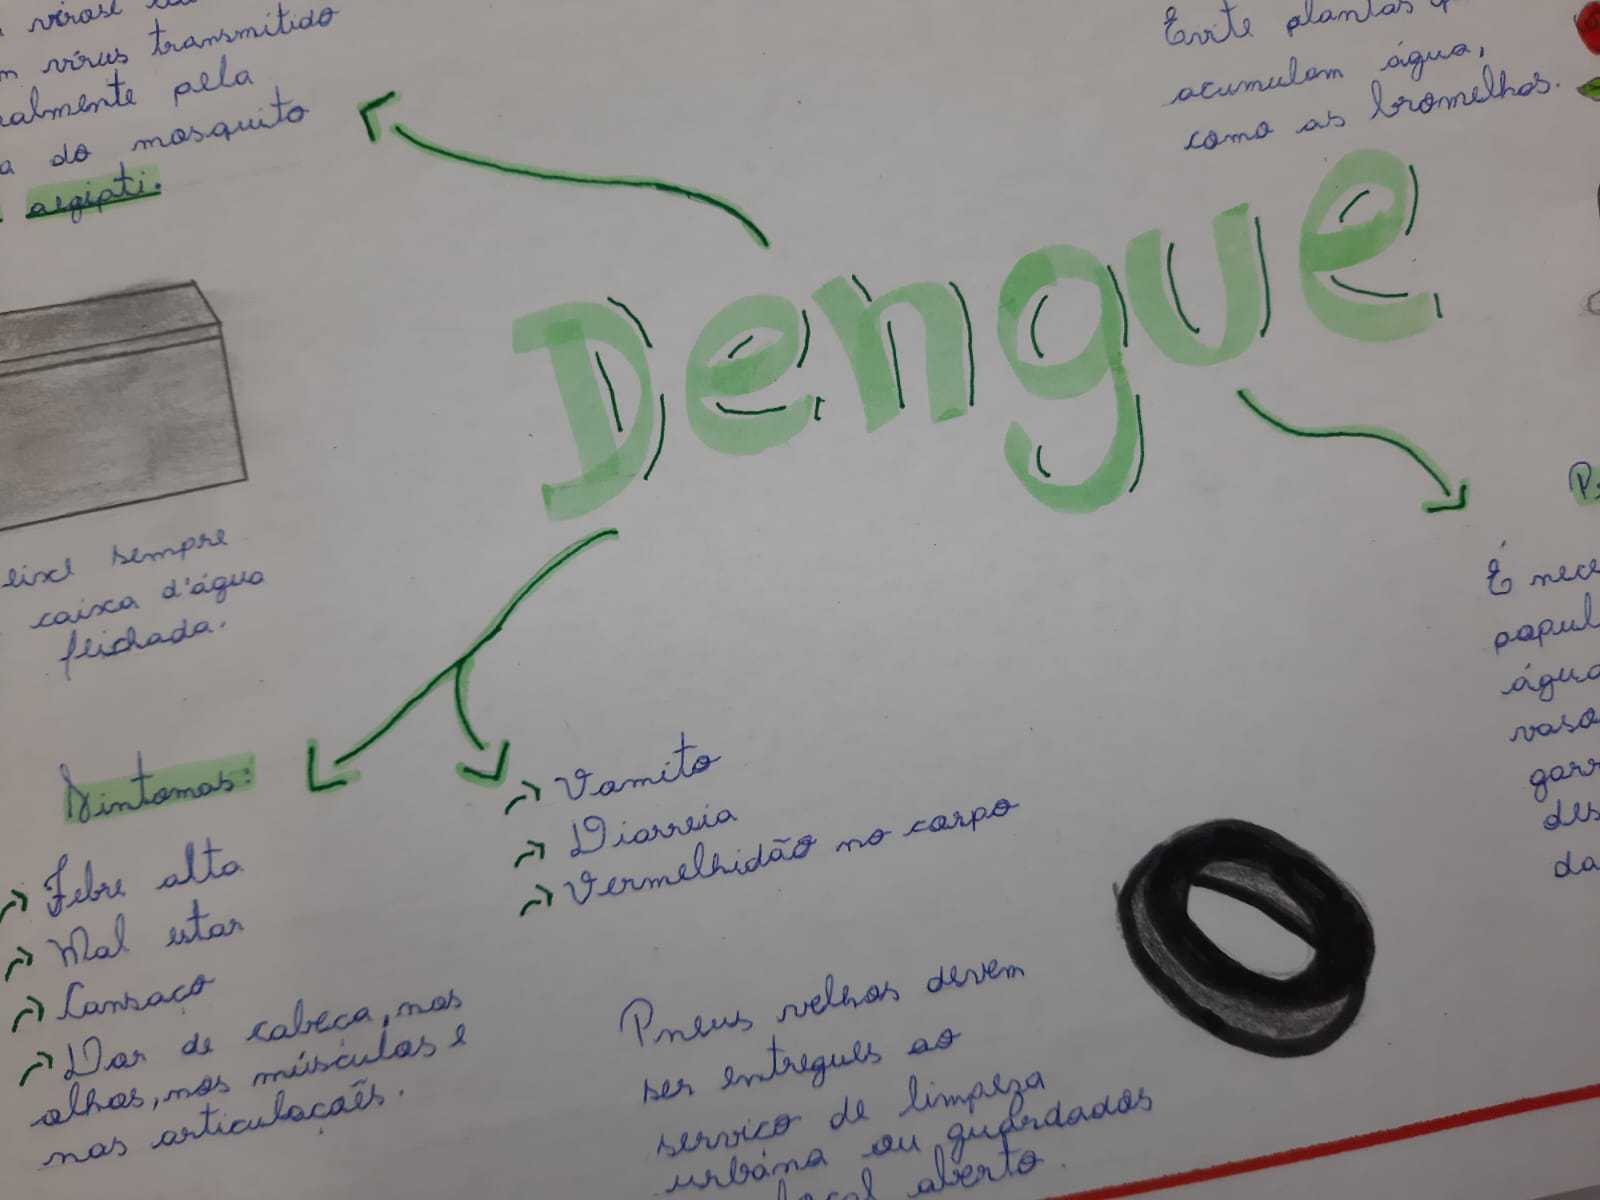 virose
vírus transmitido
pela
do mosquito
aegipti.
Evite plantas
acumulam água,
como as bromelhas.
Dengue
sempre
caixa d'água
feichada.
É
Sintomas:
Febre alta
Mal estar
Cansaço
Dor de cabeça, nos
olhos, nos músculos e
nas articulaçaẽs.
Vomito
Diarreia
Vermelhidão no corpo
Pneus velhos devem
ser entregues ao
serviço de limpeza
urbána ou guardados
aberto.